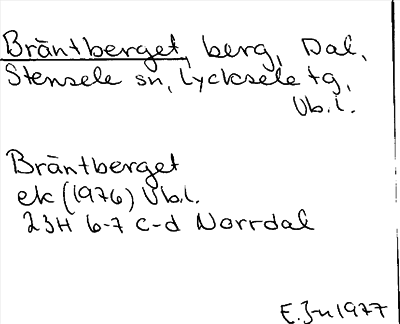 Bräntberget, berg, Dal,
Stensele sn, Lycksele tg,
Vb.l.
Bräntberget
ek (1976) Vb.l.
23H 6-7 c-d Norrdal
E. 1977